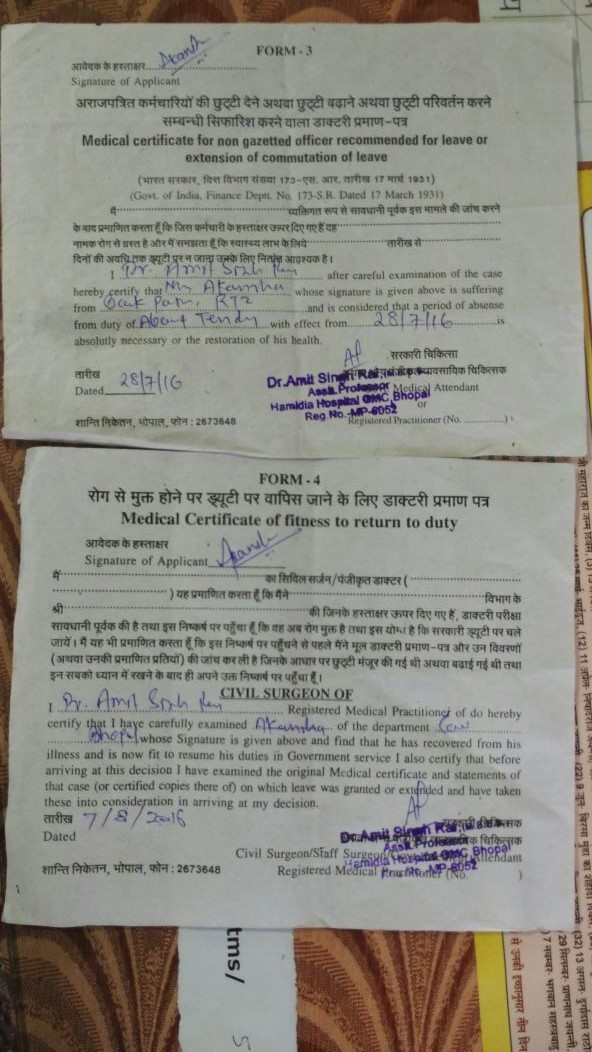 FORM - 3
आवेदक के हस्ताक्षर
Signature of Applicant
अराजपत्रित कर्मचारियों की छुट्टी देने अथवा छुट्टी बढाने अथवा छुट्टी परिवर्तन करने
सम्बन्धी सिफारिश करने वाला डाक्टरी प्रमाण-पत्र
Medical certificate for non gazetted officer recommended for leave or
extension of commutation of leave
(भारत सरकार, वित्त विभाग संख्या 173-एस. आर. तारीख 17 मार्च 1931)
(Govt. of India, Finance Deptt. No. 173-S.R. Dated 17 March 1931)
मैं व्यक्तिगत रूप से सावधानी पूर्वक इस मामले की जांच करने
के बाद प्रमाणित करता हूँ कि जिस कर्मचारी के हस्ताक्षर ऊपर दिए गए हैं वह
नामक रोग से ग्रस्त है और मैं समझता हूँ कि स्वास्थ्य लाभ के लिये तारीख से
दिनों की अवधि तक ड्यूटी पर न जाना उनके लिए नितांत आवश्यक है।
I Dr. Amit Singh Rai after careful examination of the case
hereby certify that Akansha whose signature is given above is suffering
from and is considered that a period of absence
from duty of About with effect from 28/7/16 is
absolutely necessary or the restoration of his health.
सरकारी चिकित्सा
तारीख
Dated 28/7/16
Dr. Amit Singh Rai
Asstt. Professor
Medical Attendant
Hamidia Hospital GMC, Bhopal
or
Reg No.-MP-6052
Registered Practitioner (No. )
शान्ति निकेतन, भोपाल, फोन : 2673648
FORM - 4
रोग से मुक्त होने पर ड्यूटी पर वापिस जाने के लिए डाक्टरी प्रमाण पत्र
Medical Certificate of fitness to return to duty
आवेदक के हस्ताक्षर
Signature of Applicant
मैं का सिविल सर्जन/पंजीकृत डाक्टर (
) यह प्रमाणित करता हूँ कि मैंने विभाग के
श्री की जिनके हस्ताक्षर ऊपर दिए गए हैं, डाक्टरी परीक्षा
सावधानी पूर्वक की है तथा इस निष्कर्ष पर पहुँचा हूँ कि वह अब रोग मुक्त है तथा इस योग्य है कि सरकारी ड्यूटी पर चले
जायें। मैं यह भी प्रमाणित करता हूँ कि इस निष्कर्ष पर पहुँचने से पहले मैंने मूल डाक्टरी प्रमाण-पत्र और उन विवरणों
(अथवा उनकी प्रमाणित प्रतियों) की जांच कर ली है जिनके आधार पर छुट्टी मंजूर की गई थी अथवा बढाई गई थी तथा
इन सबको ध्यान में रखने के बाद ही अपने उक्त निष्कर्ष पर पहुँचा हूँ।
CIVIL SURGEON OF
I Dr. Amit Singh Rai Registered Medical Practitioner of do hereby
certify that I have carefully examined Akansha of the department
Bhopal whose Signature is given above and find that he has recovered from his
illness and is now fit to resume his duties in Government service I also certify that before
arriving at this decision I have examined the original Medical certificate and statements of
that case (or certified copies there of) on which leave was granted or extended and have taken
these into consideration in arriving at my decision.
तारीख 7/8/2016
Dated
Dr. Amit Singh Rai
Asstt. Professor
Civil Surgeon/Staff Surgeon
Hamidia Hospital GMC, Bhopal
Attendant
शान्ति निकेतन, भोपाल, फोन : 2673648 Registered Medical Practitioner (No. )
tms/